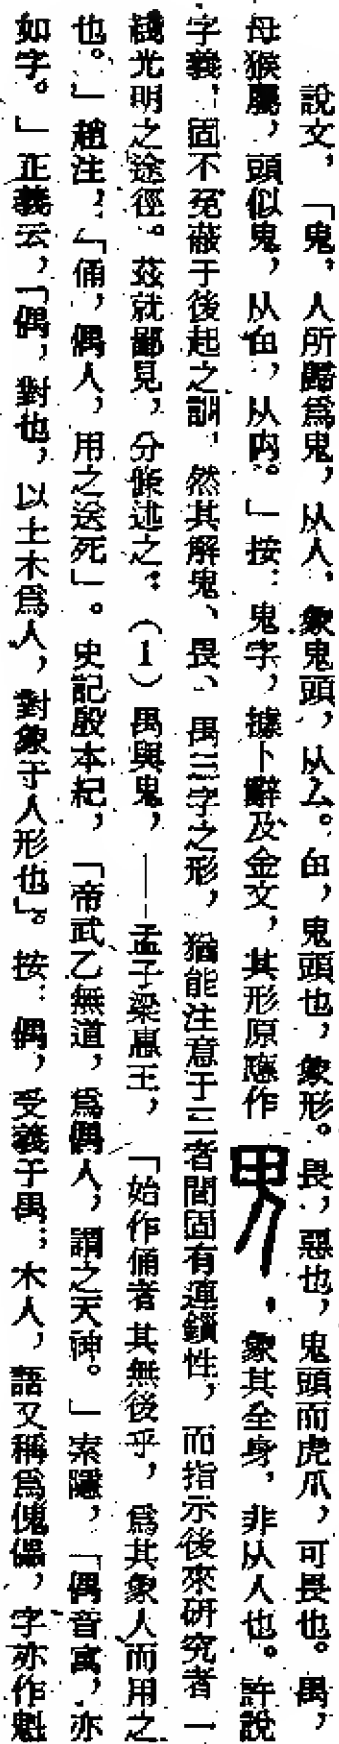 說文，「鬼，人所歸爲鬼，从人，象鬼頭，从厶。甶，鬼頭也，象形。畏，惡也，鬼頭而虎爪，可畏也。禺，
母猴屬，頭似鬼，从甶，从内。」按：鬼字，據卜辭及金文，其形原應作，象其全身，非从人也。許說
字義，固不免蔽于後起之訓，然其解鬼、畏、禺三字之形，猶能注意于三者間固有連鎖性，而指示後來研究者一
綫光明之途徑。茲就鄙見，分條述之：（1）禺與鬼，——孟子梁惠王，「始作俑者其無後乎，爲其象人而用之
也。」趙注，「俑，偶人，用之送死」。史記殷本紀，「帝武乙無道，爲偶人，謂之天神。」索隱，「偶音寓，亦
如字。」正義云，「偶，對也，以土木爲人，對象于人形也」。按：偶，受義于禺；木人，語又稱爲傀儡，字亦作魁